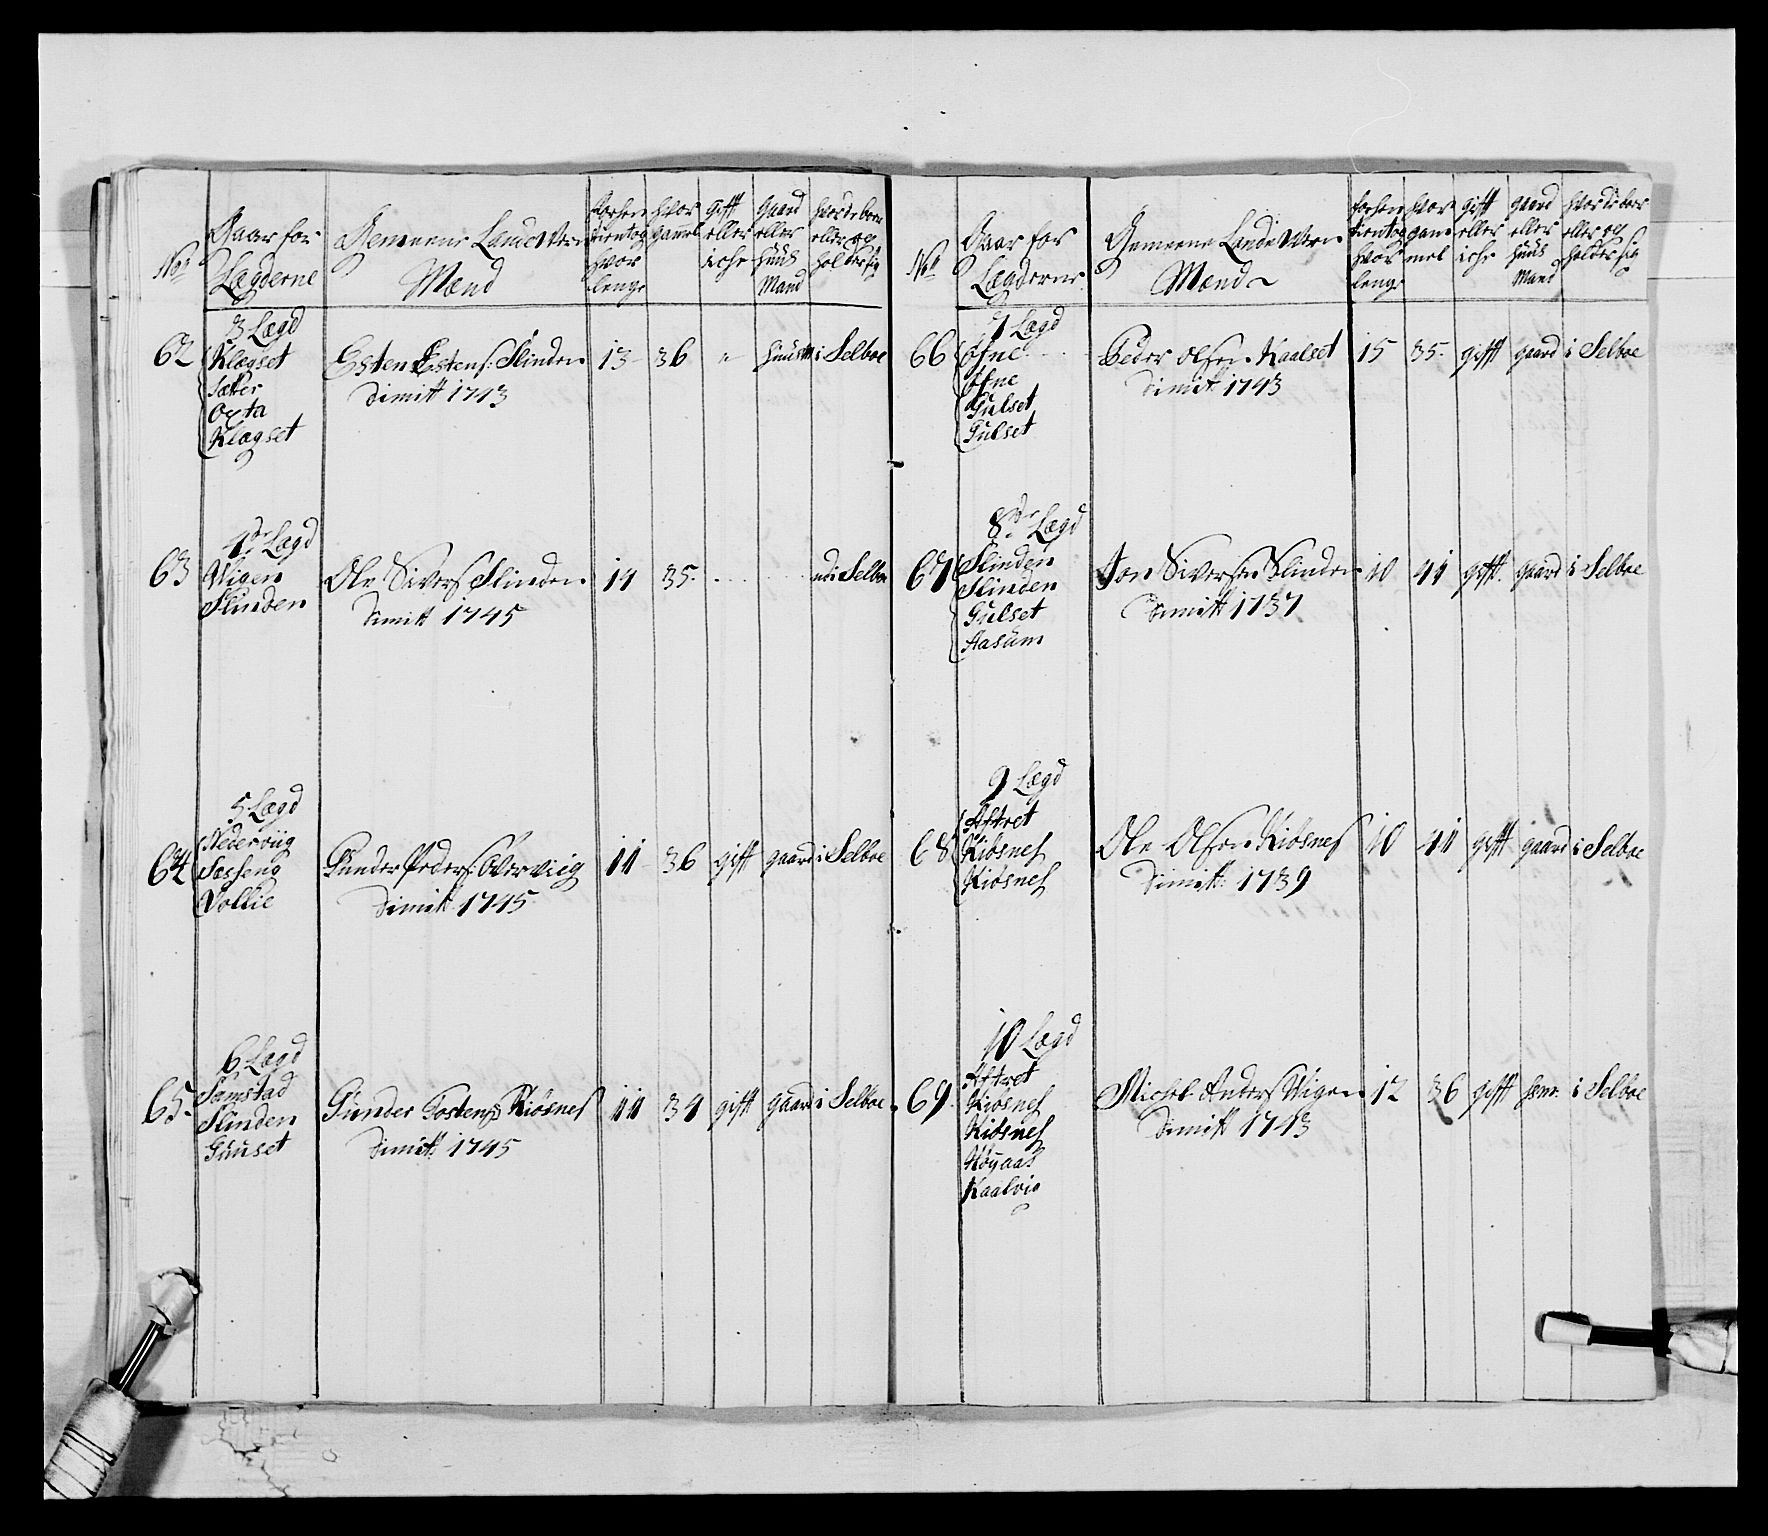 No
Gaar for
Lægderne
Gemeene Lande Wern
Mænd
forhen
tientog
hvor
lenge
hvor
gamel
gift
eller
iche
Gaard
eller
Huus
Mand
hvor de boer
eller og
holder sig
62
3 Lægd
Klægset
Sæter
Oxta
Klægset
Esten Estens: Slinden
dimitt 1743
13
36
"
huusm
i Selboe
63
4de Lægd
Wigen
Slinden
Ole Sivers Slinden
dimitt 1745
11
35.
ndi Selboe
64
5 Lægd
Nederviig
Sesseng
Dollie
Gunder Peders: Overviig
dimitt 1745
11
36
gift
gaard
i Selboe
65.
6 Lægd
Samstad
Slinden
Guuset
Gunder Tostens: Kiøsnes
dimitt: 1745
11
34
gift
gaard
i Selboe
No
Gaar for
Lægderne
Gemeene Lande Wern
Mænd
forhen
tientog
hvor
lenge
hvor
gam
mel
gift
eller
iche
gaard
eller
huus
Mand
hvor de boer
eller og
holder sig
66
7 Lægd
Øfne
Øfne
Gulset
Gulset
Peder Olsen Kaalset
dimitt 1743
15
35.
gifft
gaard
i Selboe
67
8de Lægd
Slinden
Slinden
Gulset
Aasum
Jon Siversen Slinden
Dimitt 1737
10
41
gifft.
gaard
i Selboe
68
9 Lægd
Aftret
Kiøsnes
Kiøsnes
Ole Olsen Kiøsnes
dimitt: 1739
10
41
gifft
gaard
i Selboe
69
10 Lægd
Aftret
Kiøsnes
Kiøsnes
Høyaas
Kaalvie
Michel Anders: Wigen
Dimitt 1743
12
36
gifft
hsm.
i Selboe